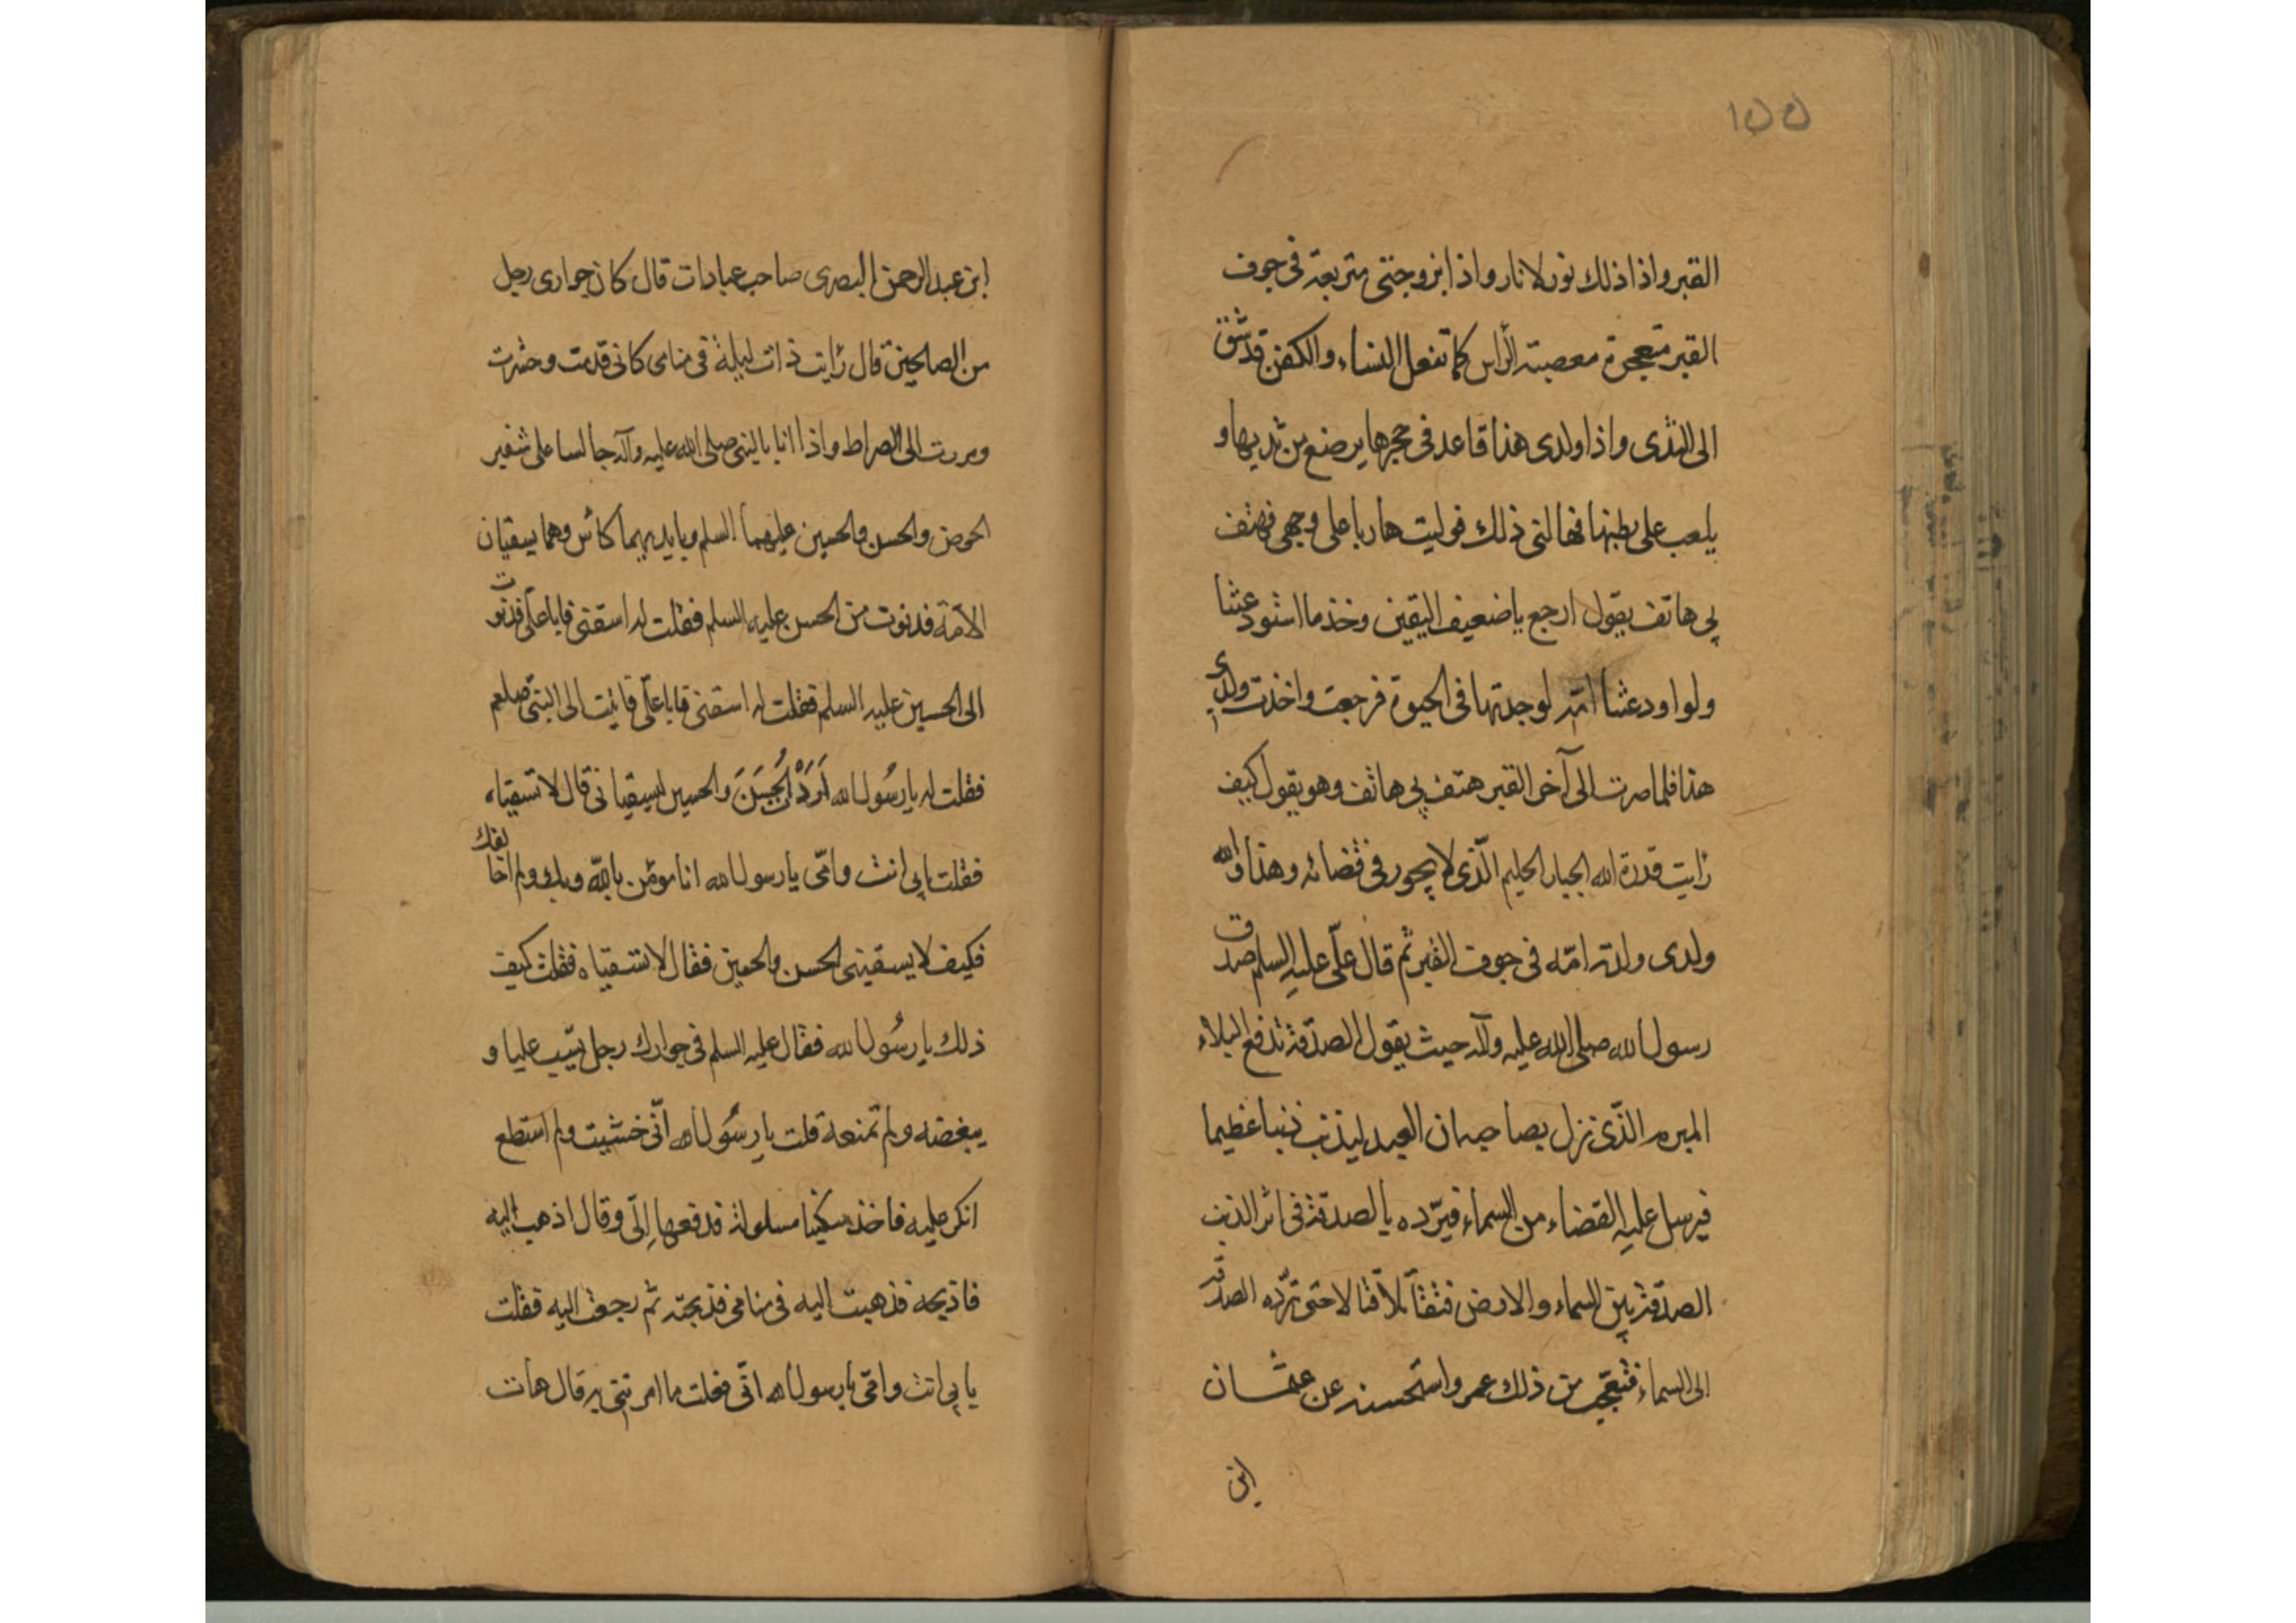 ١٥٥
القبر واذا ذلك نور لا نار واذا بزوجتي متربعة في جوف
القبر متعجرة معصبته الرأس كما تفعل النساء والكفن قد شق
الى الثدى واذا ولدى هذا قاعد فى حجرها يرضع من ثديها و
يلعب على بطنها فهالنى ذلك فوليت هاربا على وجهى فهتف
بي هاتف يقول ارجع يا ضعيف اليقين وخذ ما استودعتنا
ولو اودعتنا امّه لوجدتها فى الحيوة فرجعت واخذت ولدى
هذا فلما صرت الى آخر القبر هتف بي هاتف وهو يقول كيف
رايت قدرة الله الجبار الحليم الّذى لا يجور فى قضائه وهذا والله
ولدى ولدته امّه فى جوف القبر ثم قال علّى عليه السلم صدق
رسول الله صلى الله عليه وآله حيث يقول الصدّقة تدفع البلاء
المبرم الذّى نزل بصاحبه ان العبد ليذنب ذنبا عظيما
فيرسل عليه القضاء من السماء فيرّده بالصدقة فى اثر الذنب
الصدّقة بين السماء والارض فتقاتلا حتى تردّه الصدّقة
الى السماء فتعجب من ذلك عمر واستحسنه عن عثمان
ابن
ابن عبد الرحمن البصرى صاحب عبادات قال كان جوارى رجل
من الصالحين قال رايت ذات ليلة فى منامى كانى قدمت وحشرت
ومررت الى الصراط واذا انا بالنبى صلى الله عليه وآله جالسا على شفير
الحوض والحسن والحسين عليهما السلم وبايديهما كأس وهما يسقيان
الامّة فدنوت من الحسن عليه السلم فقلت له اسقنى فابا علّى فدنوت
الى الحسين عليه السلم فقلت له اسقنى فابا علّى فاتيت الى النبّى صلعم
فقلت له يا رسُول الله اَرَدْ الْحُسَنَ والحسين ليسقيانى قال لا تسقياه
فقلت بابي انت وامّى يا رسول الله انا مؤمن باللّه وبك ولم اخالفك
فكيف لا يسقينى الحسن والحسين فقال لا تسقياه فقلت كيف
ذلك يا رسُول الله فقال عليه السلم فى جوارك رجل يسّب عليا و
يبغضه ولم تمنعه قلت يا رسُول الله انّى خشيت ولم استطع
انكر عليه فاخذ سكينا مسلولة فدفعها إلّى وقال اذهب اليه
فاذبحه فذهبت اليه فى منامى فذبحته ثم رجعت اليه فقلت
بابي انت وامّى يا رسول الله انّى فعلت ما امرتنى به قال هات